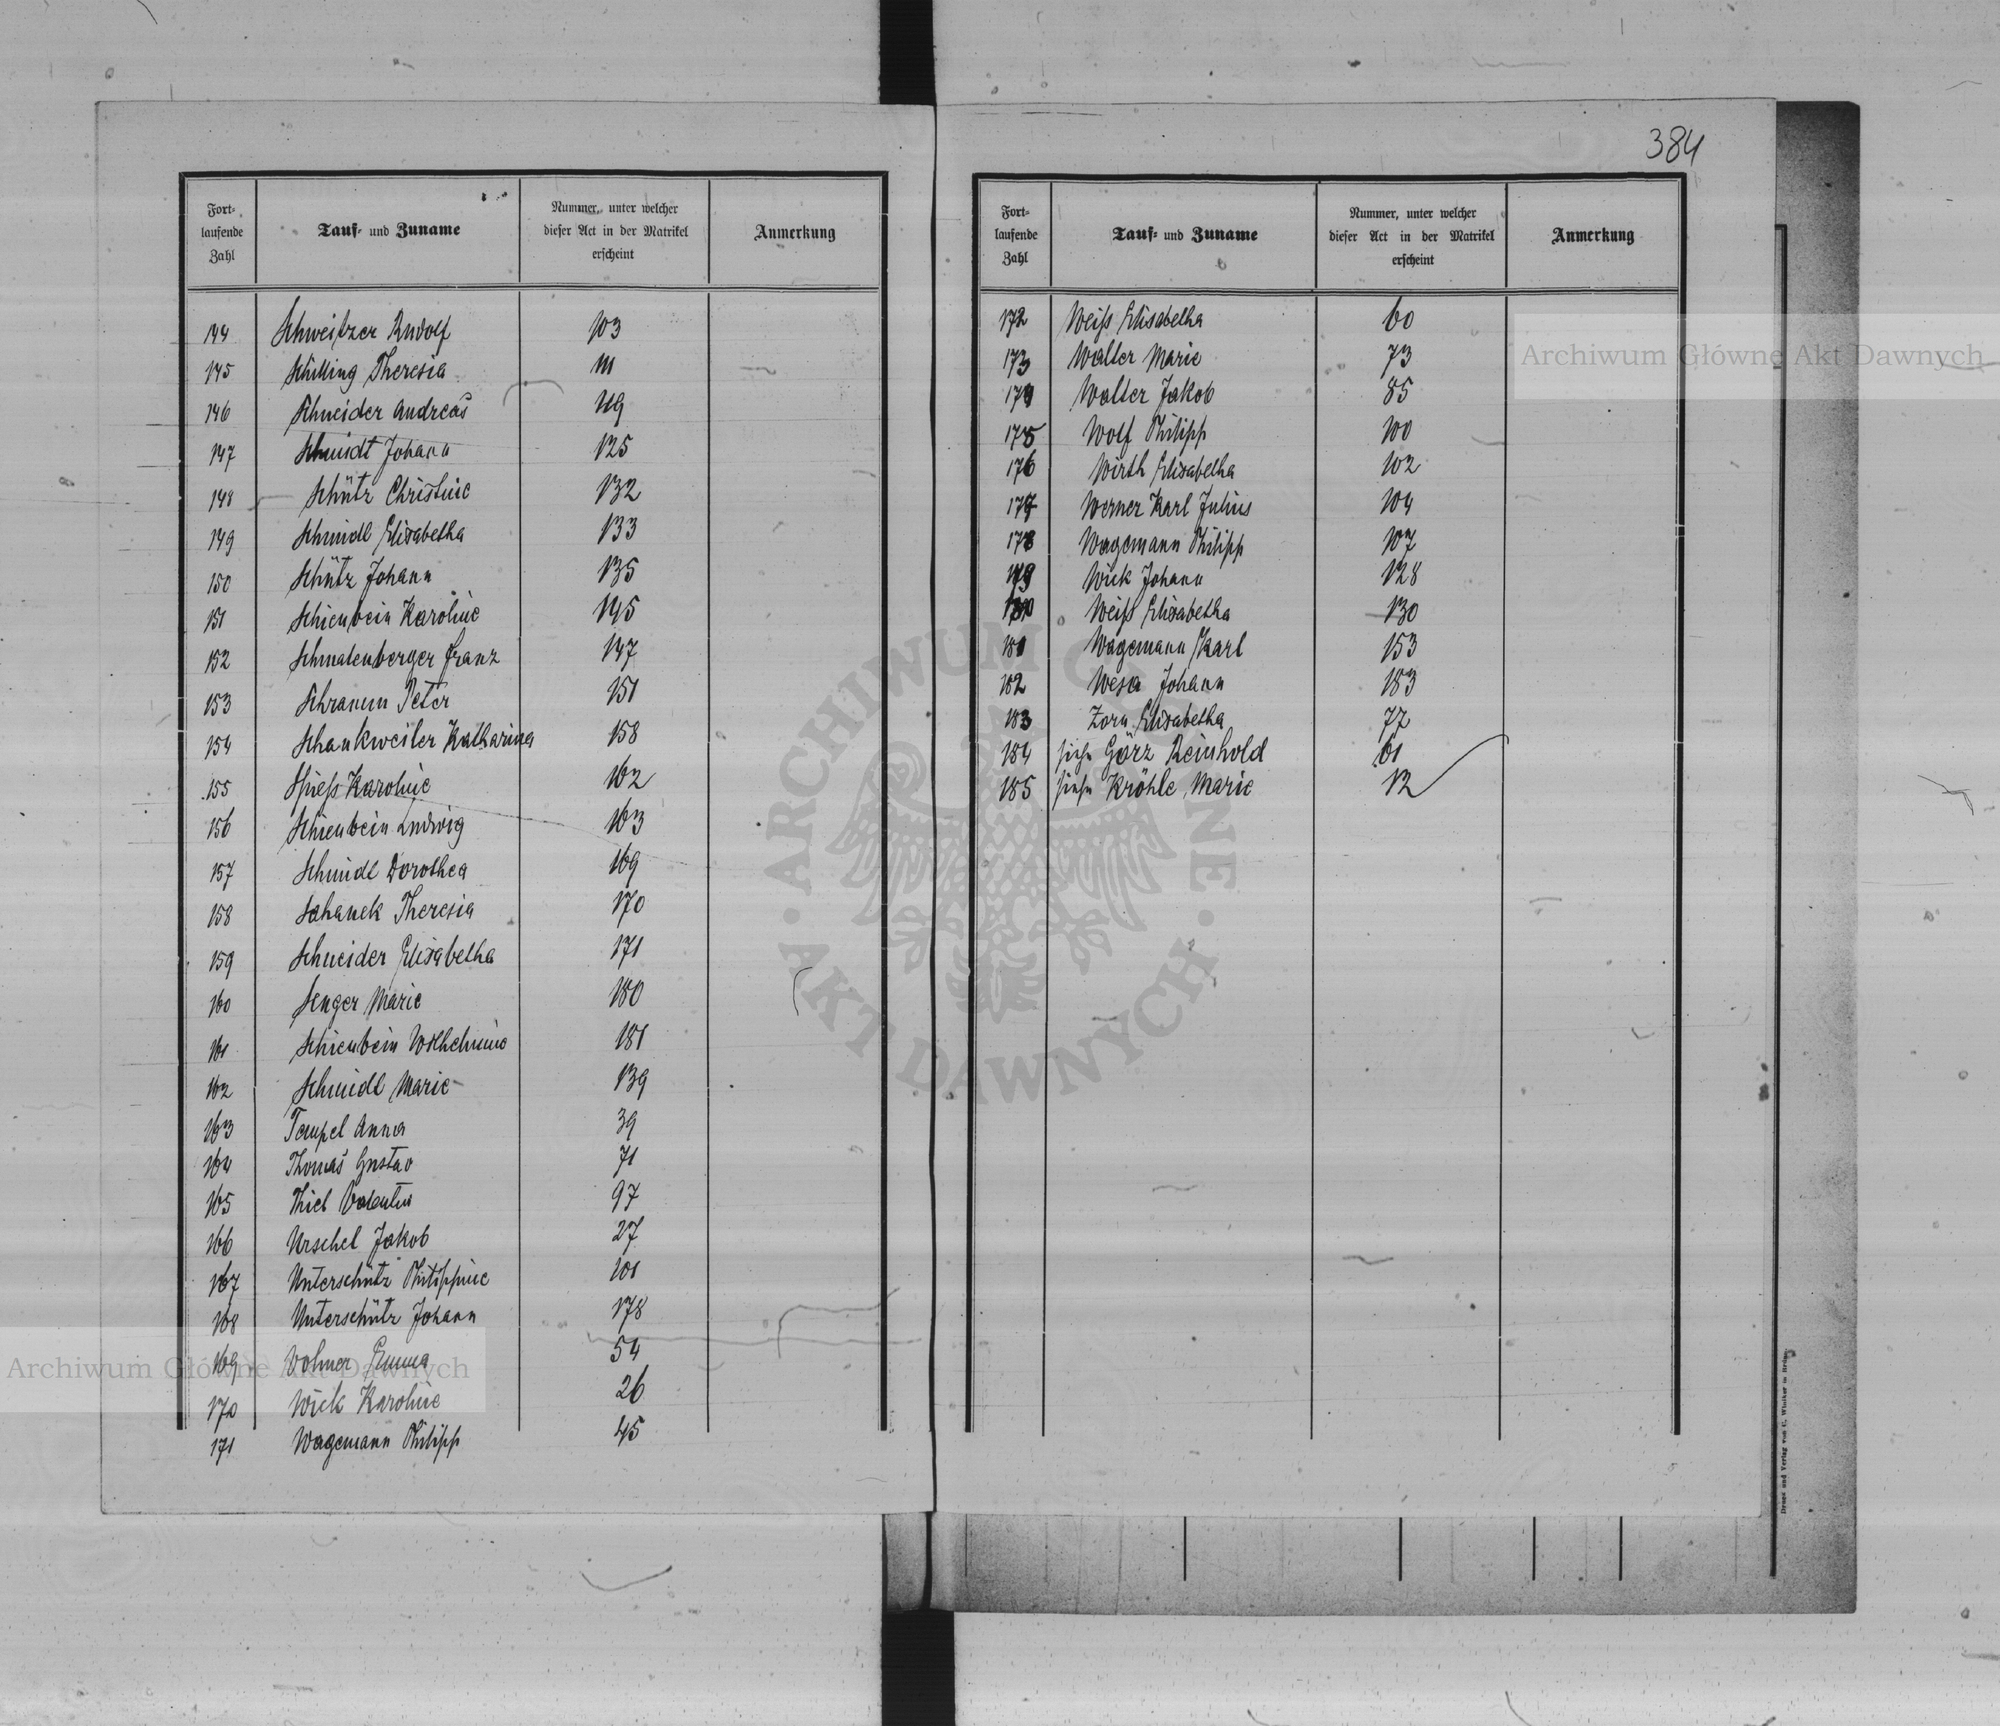 384
Fort-
laufende
Zahl
Tauf- und Zuname
Nummer, unter welcher
dieser Act in der Matrikel
erscheint
Anmerkung
144 Schweitzer Rudolf 103
145 Schilling Theresia 111
146 Schneider Andreas 119
147 Schmidt Johann 125
148 Schütz Christine 132
149 Schmidt Elisabetha 133
150 Schütz Johann 135
151 Schienbein Karoline 145
152 Schmalenberger Franz 147
153 Schramm Peter 151
154 Schankweiler Katharina 158
155 Spieß Karoline 162
156 Schienbein Ludwig 163
157 Schmidt Dorothea 169
158 Sahanek Theresia 170
159 Schneider Elisabetha 171
160 Senger Marie 180
161 Schienbein Wilhelmine 181
162 Schmidt Marie 139
163 Tempel Anna 39
164 Thomas Gustav 71
165 Thiel Valentin 97
166 Urschel Jakob 27
167 Unterschütz Philippine 101
168 Unterschütz Johann 178
169 Volmer Emma 54
170 Wick Karoline 26
171 Wagemann Philipp 45
Fort-
laufende
Zahl
Tauf- und Zuname
Nummer, unter welcher
dieser Act in der Matrikel
erscheint
Anmerkung
172 Weiß Elisabetha 60
173 Walter Marie 73
174 Walter Jakob 85
175 Wolf Philipp 100
176 Wirth Elisabetha 102
177 Werner Karl Julius 104
178 Wagemann Philipp 107
179 Wick Johann 128
180 Weiß Elisabetha 130
181 Wagemann Karl 153
182 Wesa Johann 183
183 Zorn Elisabetha 77
184 siehe Görz Reinhold 61
185 siehe Kröhle Marie 12
Druck und Verlag von C. Winiker in Brünn.
Archiwum Główne Akt Dawnych
Archiwum Główne Akt Dawnych
ARCHIWUM GŁÓWNE · AKT DAWNYCH ·